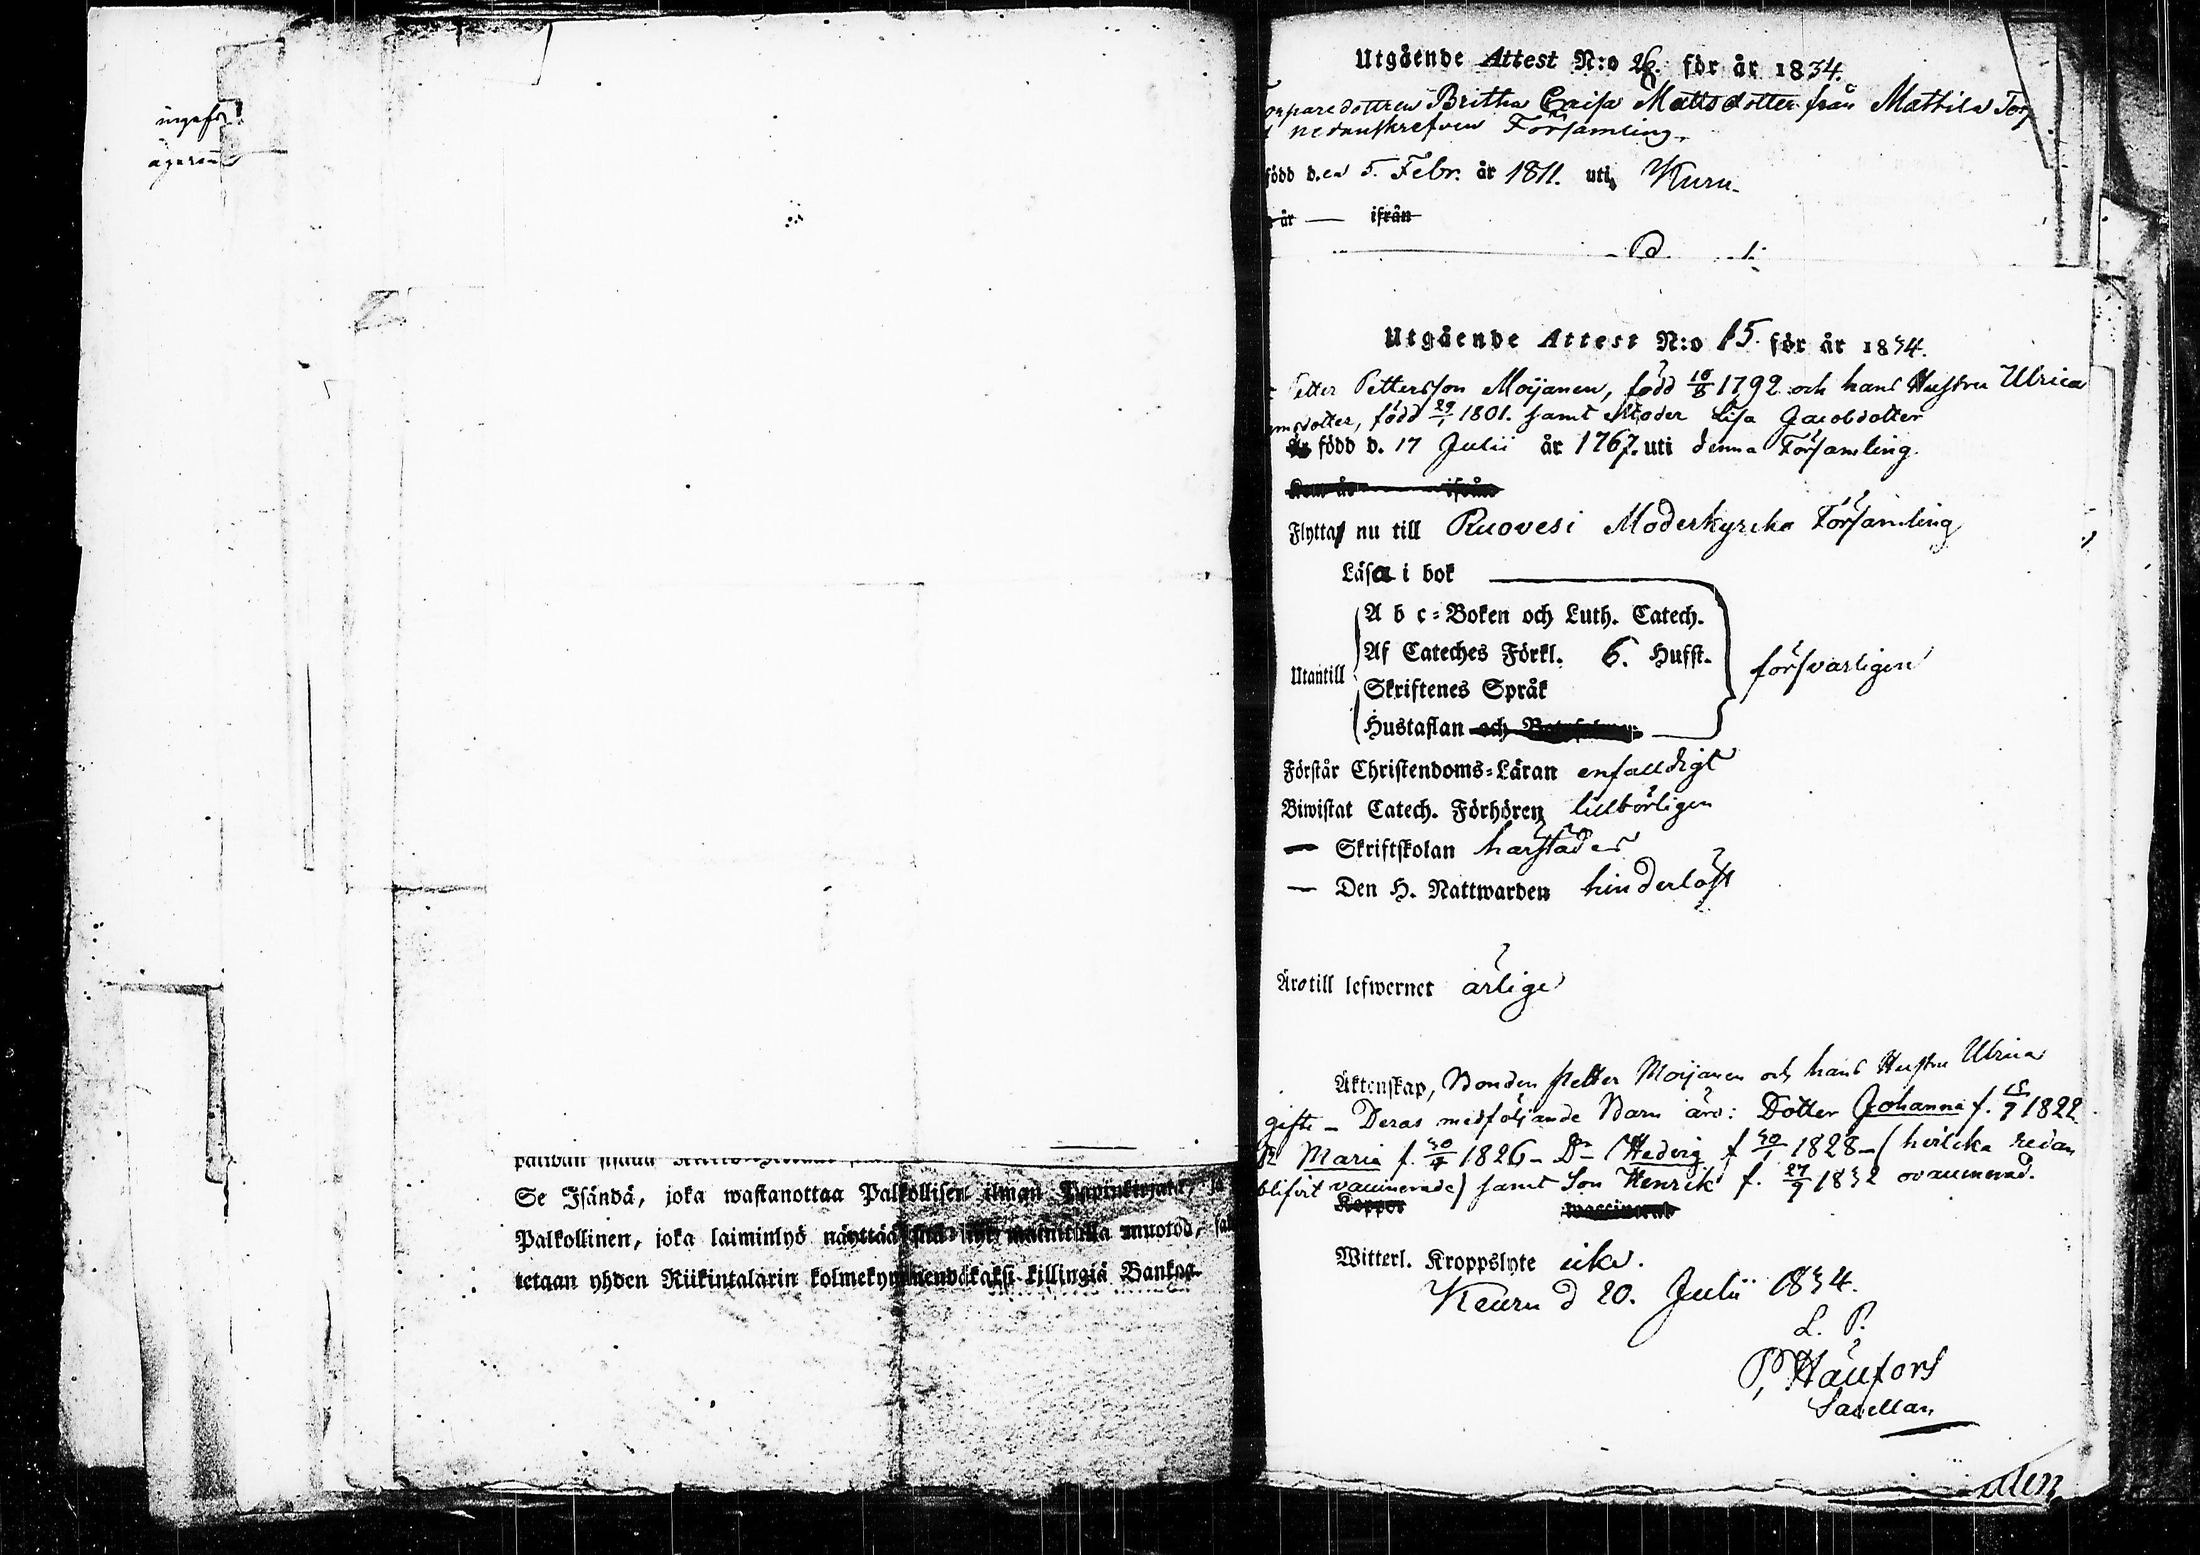 ägaren
Se Isändä, joka wastanottaa Palkollisen ilman Papinkirjata, ja
Palkollinen, joka laiminlyö näyttää muotod,
tetaan yhden Riikintalarin kolmekymmendäkaksi killingiä Bankos.
Utgående Attest N:o 26. för år 1834.
Britha Caisa Mattsdotter från Mattila Torp
nedanskrefven Församling.
född d.en 5. Febr. år 1811. uti Kuru.
år — ifrån
Utgående Attest N:o 15. för år 1834.
Petter Pettersson Moijanen, född 18/8 1792 och hans Hustru Ulrica
dotter, född 29/1 1801. samt Moder Lisa Jacobsdotter
född d. 17 Julii år 1767. uti denna Församling.
Kom år ifrån
Flytta nu till Ruovesi Moderkyrcko Församling
Läsa i bok
A b c=Boken och Luth. Catech.
Af Cateches Förkl. 6. Hufst. försvarligen
Utantill
Skriftenes Språk
Hustaflan och
Förstår Christendoms=Läran enfalldigt
Biwistat Catech. Förhören tillbörligen
— Skriftskolan härstädes
— Den H. Nattwarden hinderlöst
Äro till lefwernet ärlige
Äktenskap, Bonden Petter Moijanen och hans Hustru Ulrica
gifte – Deras medföljande Barn äro: Dotter Johanna f. 15/7 1822
Dr Maria f. 30/4 1826 – Dr Hedvig f 30/1 1828 – (hvilcka redan
blifvit vaccinerade) samt Son Henrik f. 27/9 1832 ovaccinerad.
Koppor waccinerad
Witterl. Kroppslyte icke.
Keuru d 20. Julii 1834.
L. P.
P, Häufors
Sacellan